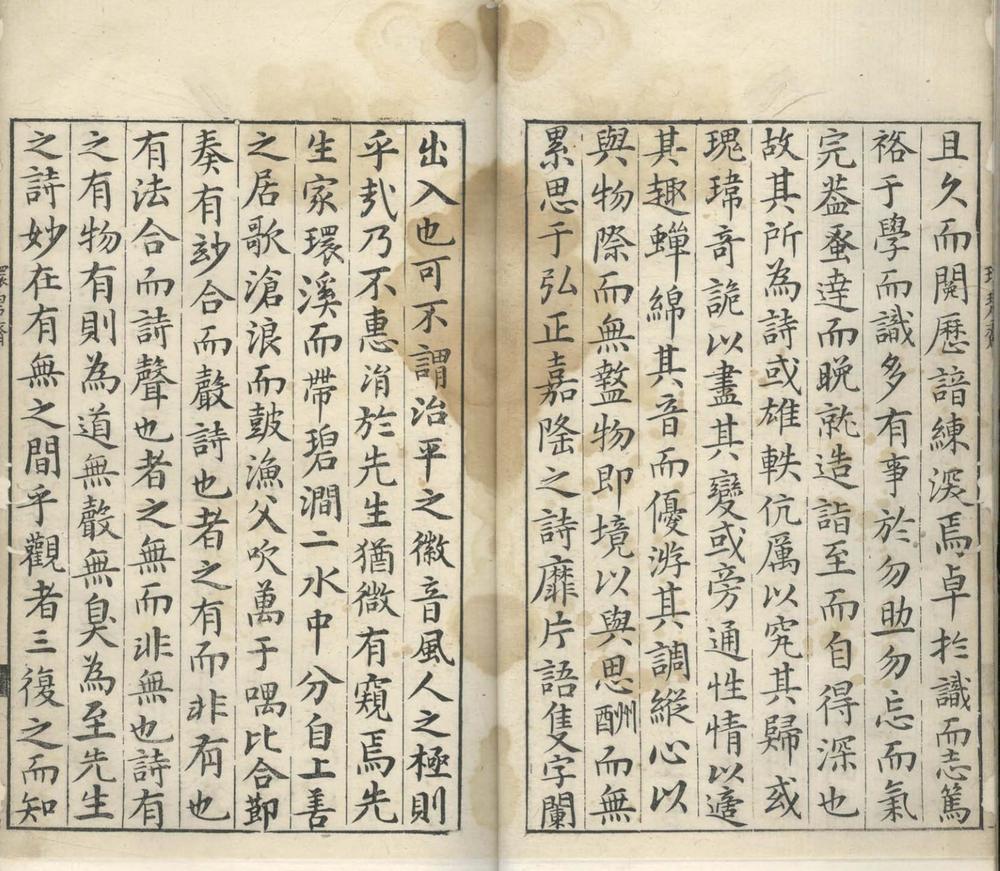 且久而閱歷諳練深焉卓於識而志篤
裕于學而識多有事於勿助勿忘而氣
完葢蚤達而晚就造詣至而自得深也
故其所為詩或雄軼伉厲以究其歸或
瑰瑋竒詭以盡其變或旁通性情以適
其趣蟬綿其音而優游其調縱心以
與物際而無盭物即境以與思酬而無
累思于弘正嘉隆之詩靡片語隻字闌
出入也可不謂治平之徽音風人之極則
乎㢤乃不惠㳙於先生猶微有窺焉先
生家環溪而帶碧澗二水中分自上善
之居歌滄浪而皷漁父吹萬于喁比合節
奏有玅合而聲詩也者之有而非有也
有法合而詩聲也者之無而非無也詩有
之有物有則為道無聲無臭為至先生
之詩妙在有無之間乎觀者三復之而知